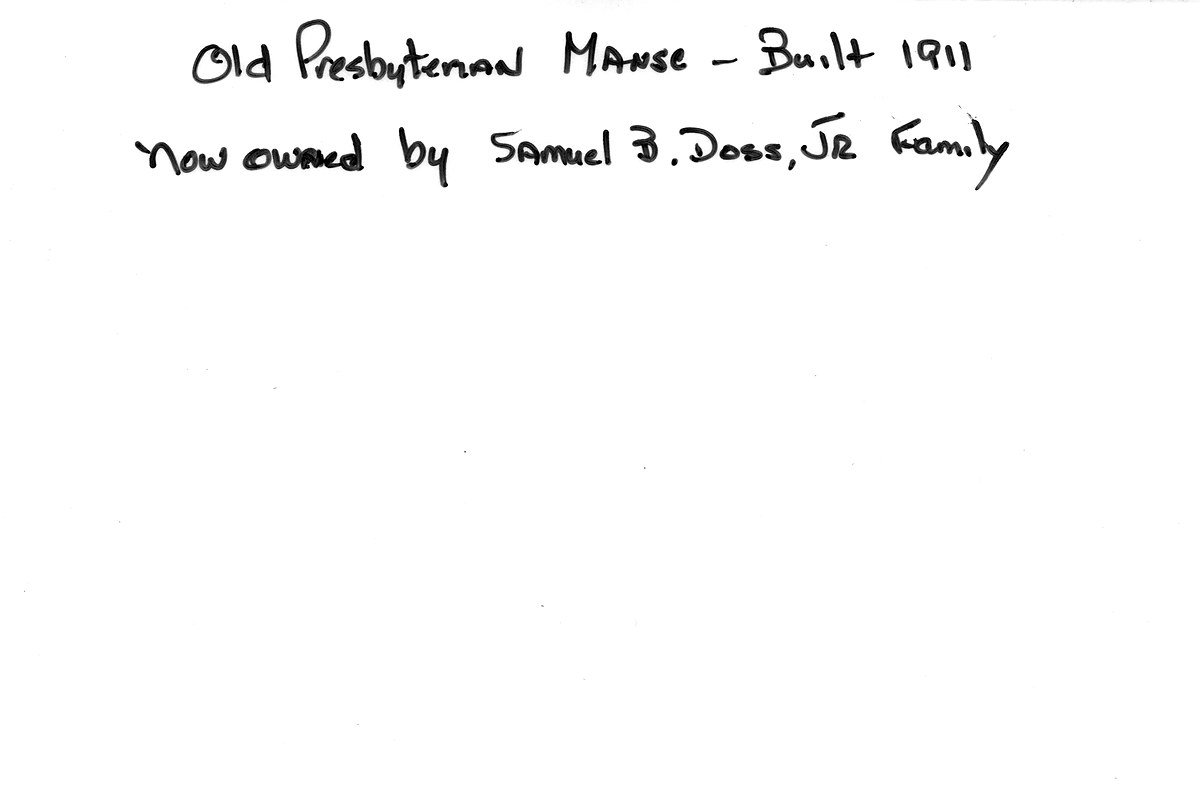 Old Presbyterian Manse – Built 1911
now owned by Samuel B. Doss, JR Family